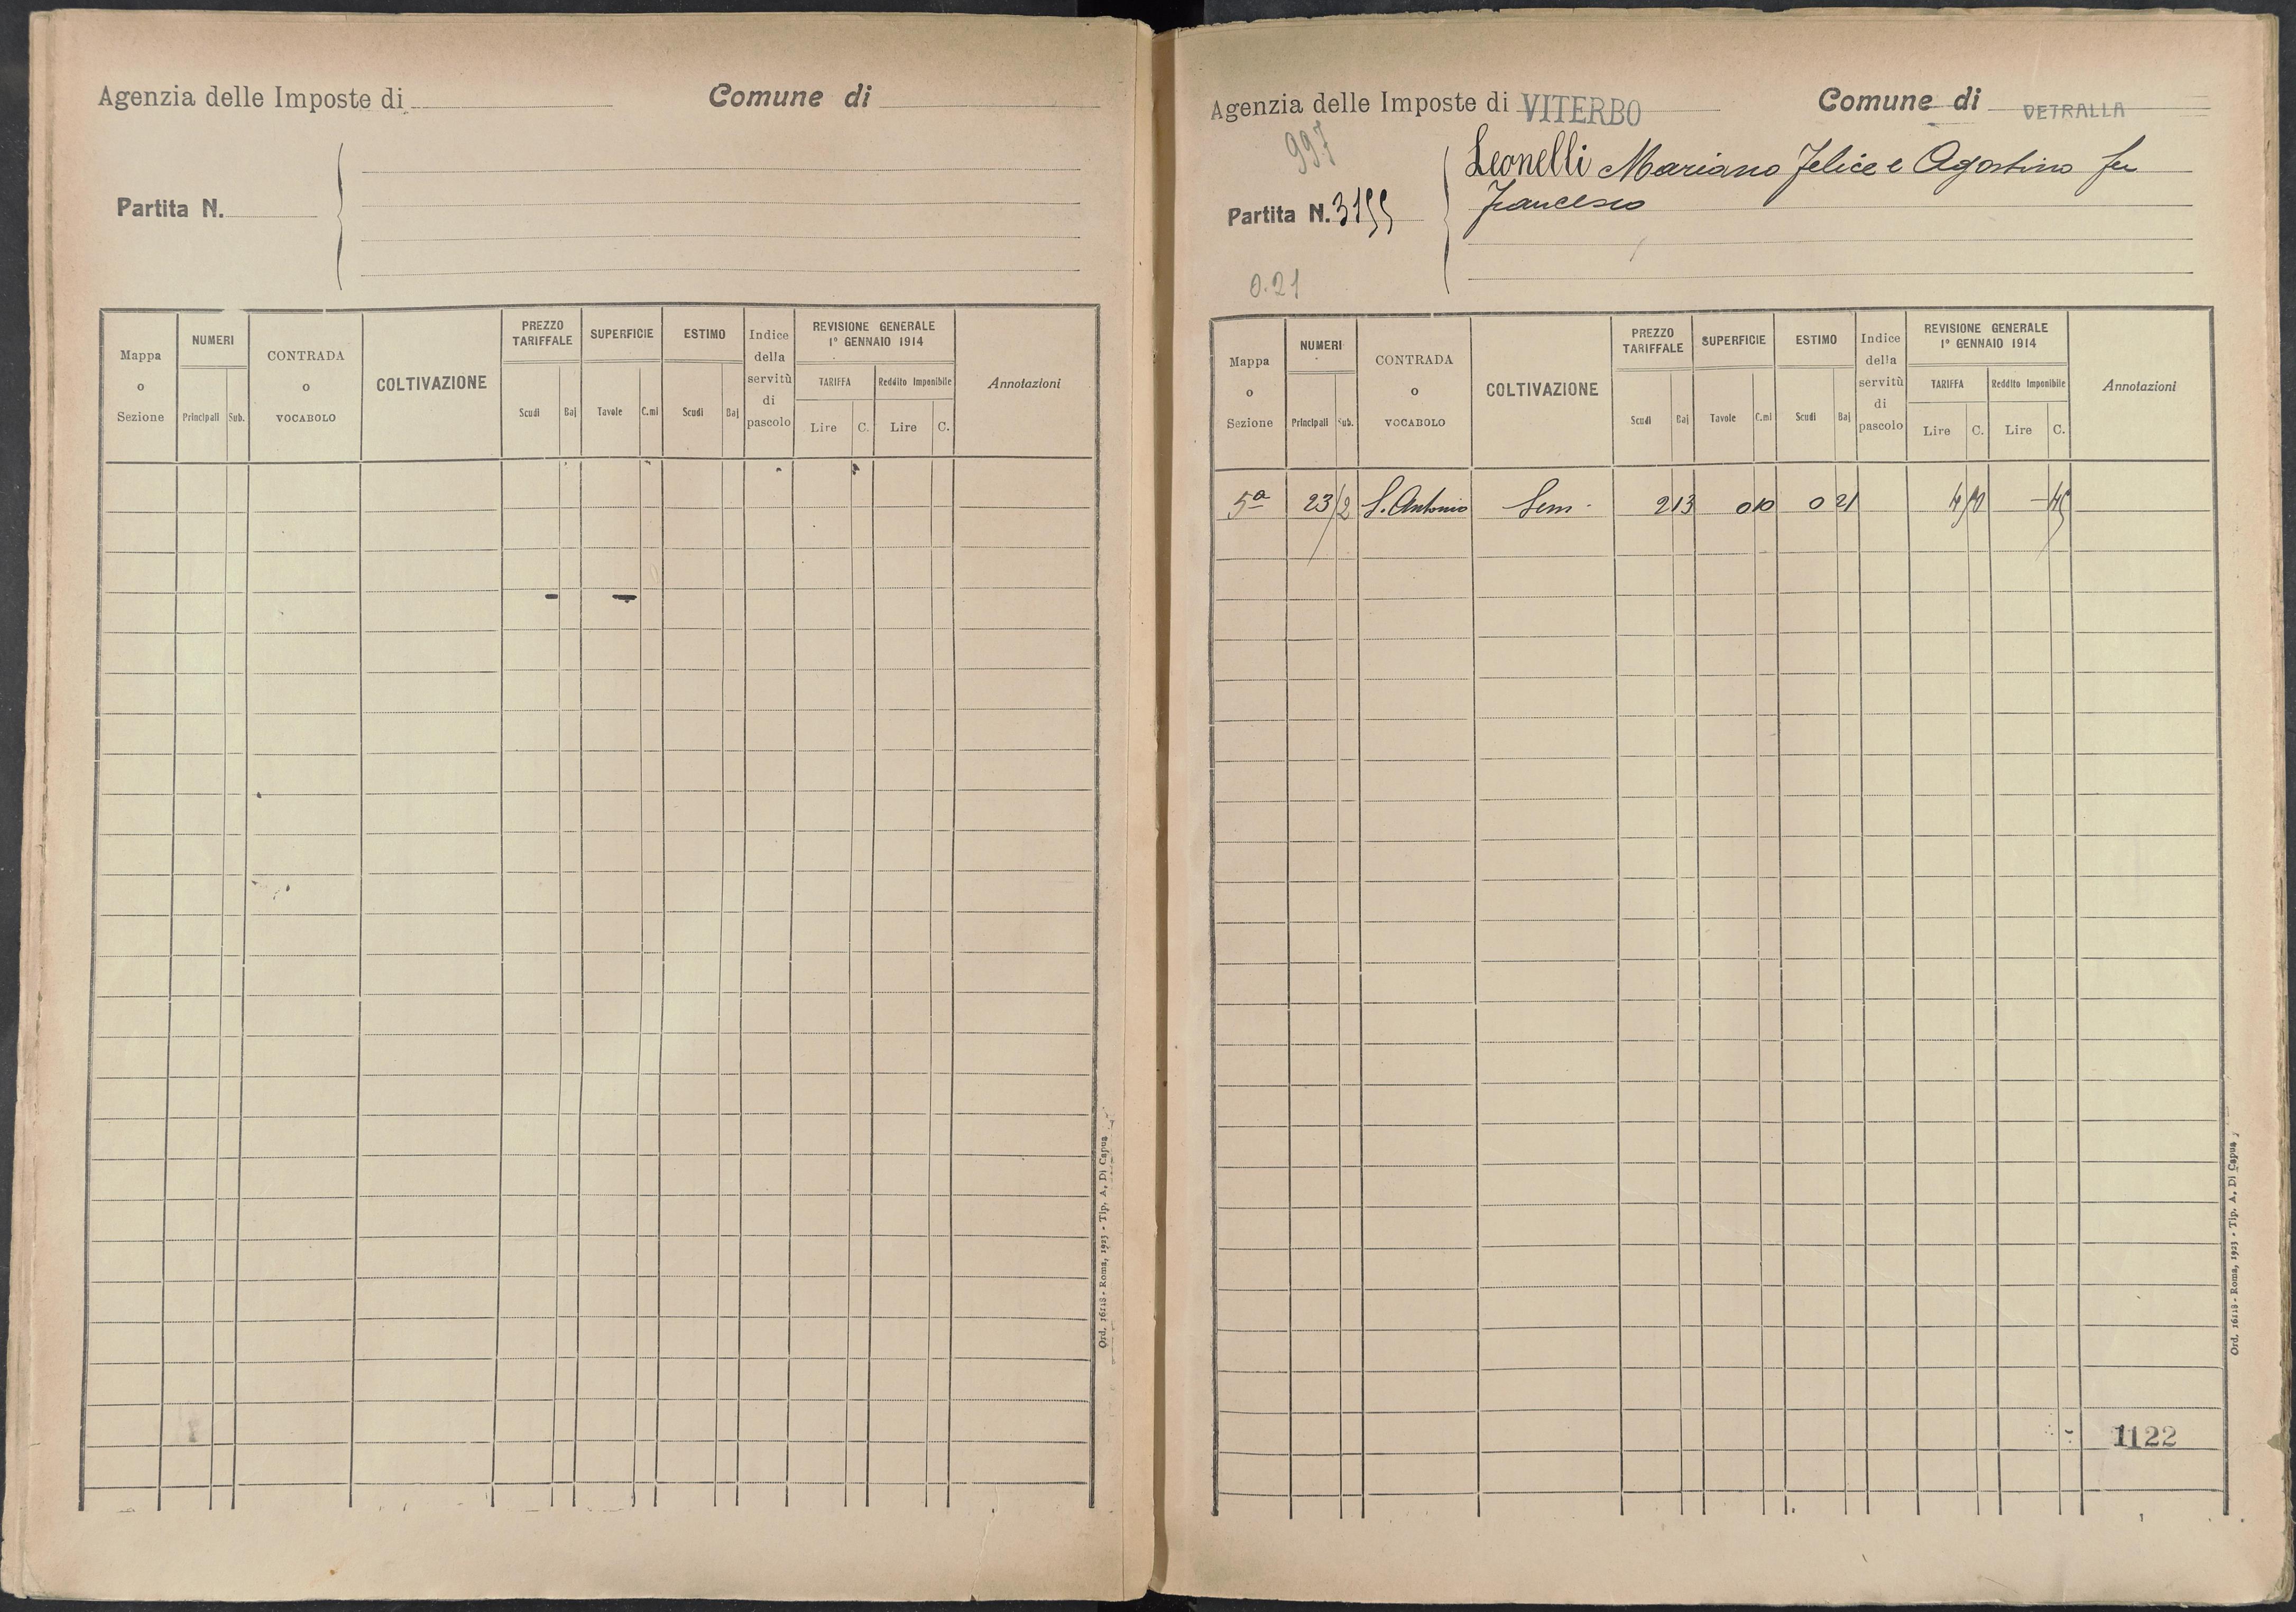 Agenzia delle Imposte di
Comune di
Partita N.
Mappa o Sezione
NUMERI
Principali Sub.
CONTRADA o VOCABOLO
COLTIVAZIONE
PREZZO TARIFFALE
Scudi Baj
SUPERFICIE
Tavole C.mi
ESTIMO
Scudi Baj
Indice della servitù di pascolo
REVISIONE GENERALE
1° GENNAIO 1914
TARIFFA Reddito Imponibile
Lire C. Lire C.
Annotazioni
Ord. 16118 - Roma, 1923 - Tip. A. Di Capua
Agenzia delle Imposte di VITERBO
Comune di VETRALLA
997
Leonelli Mariano Felice e Agostino fu
Francesco
Partita N. 3155
0.21
Mappa o Sezione
NUMERI
Principali Sub.
CONTRADA o VOCABOLO
COLTIVAZIONE
PREZZO TARIFFALE
Scudi Baj
SUPERFICIE
Tavole C.mi
ESTIMO
Scudi Baj
Indice della servitù di pascolo
REVISIONE GENERALE
1° GENNAIO 1914
TARIFFA Reddito Imponibile
Lire C. Lire C.
Annotazioni
5a 23/2 S. Antonio Sem. 2 13 0 10 0 21 4 50 - 45
1122
Ord. 16118 - Roma, 1923 - Tip. A. Di Capua